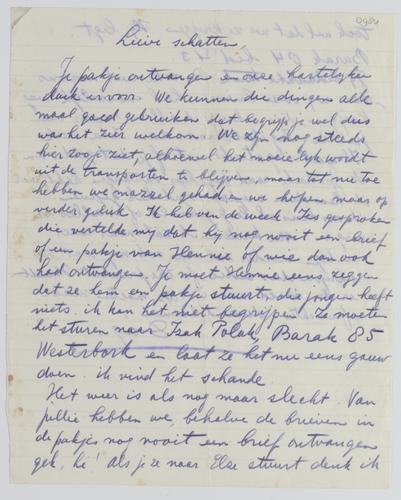 0984
Lieve schatten,
Je pakje ontvangen en onze hartelijke
dank ervoor. We kunnen die dingen alle
maal goed gebruiken dat begrijp je wel dus
was het zeer welkom. We zijn nog steeds
hier zoo je ziet, alhoewel het moeielijk wordt
uit de transporten te blijven, maar tot nu toe
hebben we mazzel gehad en we hopen maar op
verder geluk. Ik heb van de week Ies gesproken
die vertelde mij dat hij nog nooit een brief
of een pakje van Hennie of wie dan ook
had ontvangen. Je moet Hennie eens zeggen
dat ze hem een pakje stuurt, die jongen heeft
niets. ik kan het niet begrijpen. Ze moeten
het sturen naar Izak Polak, Barak 85
Westerbork en laat ze het nu eens gauw
doen. ik vind het schande.
Het weer is als nog maar slecht. Van
jullie hebben we, behalve de brieven in
de pakjes nog nooit een brief ontvangen
gek, hè! Als je ze naar Else stuurt denk ik